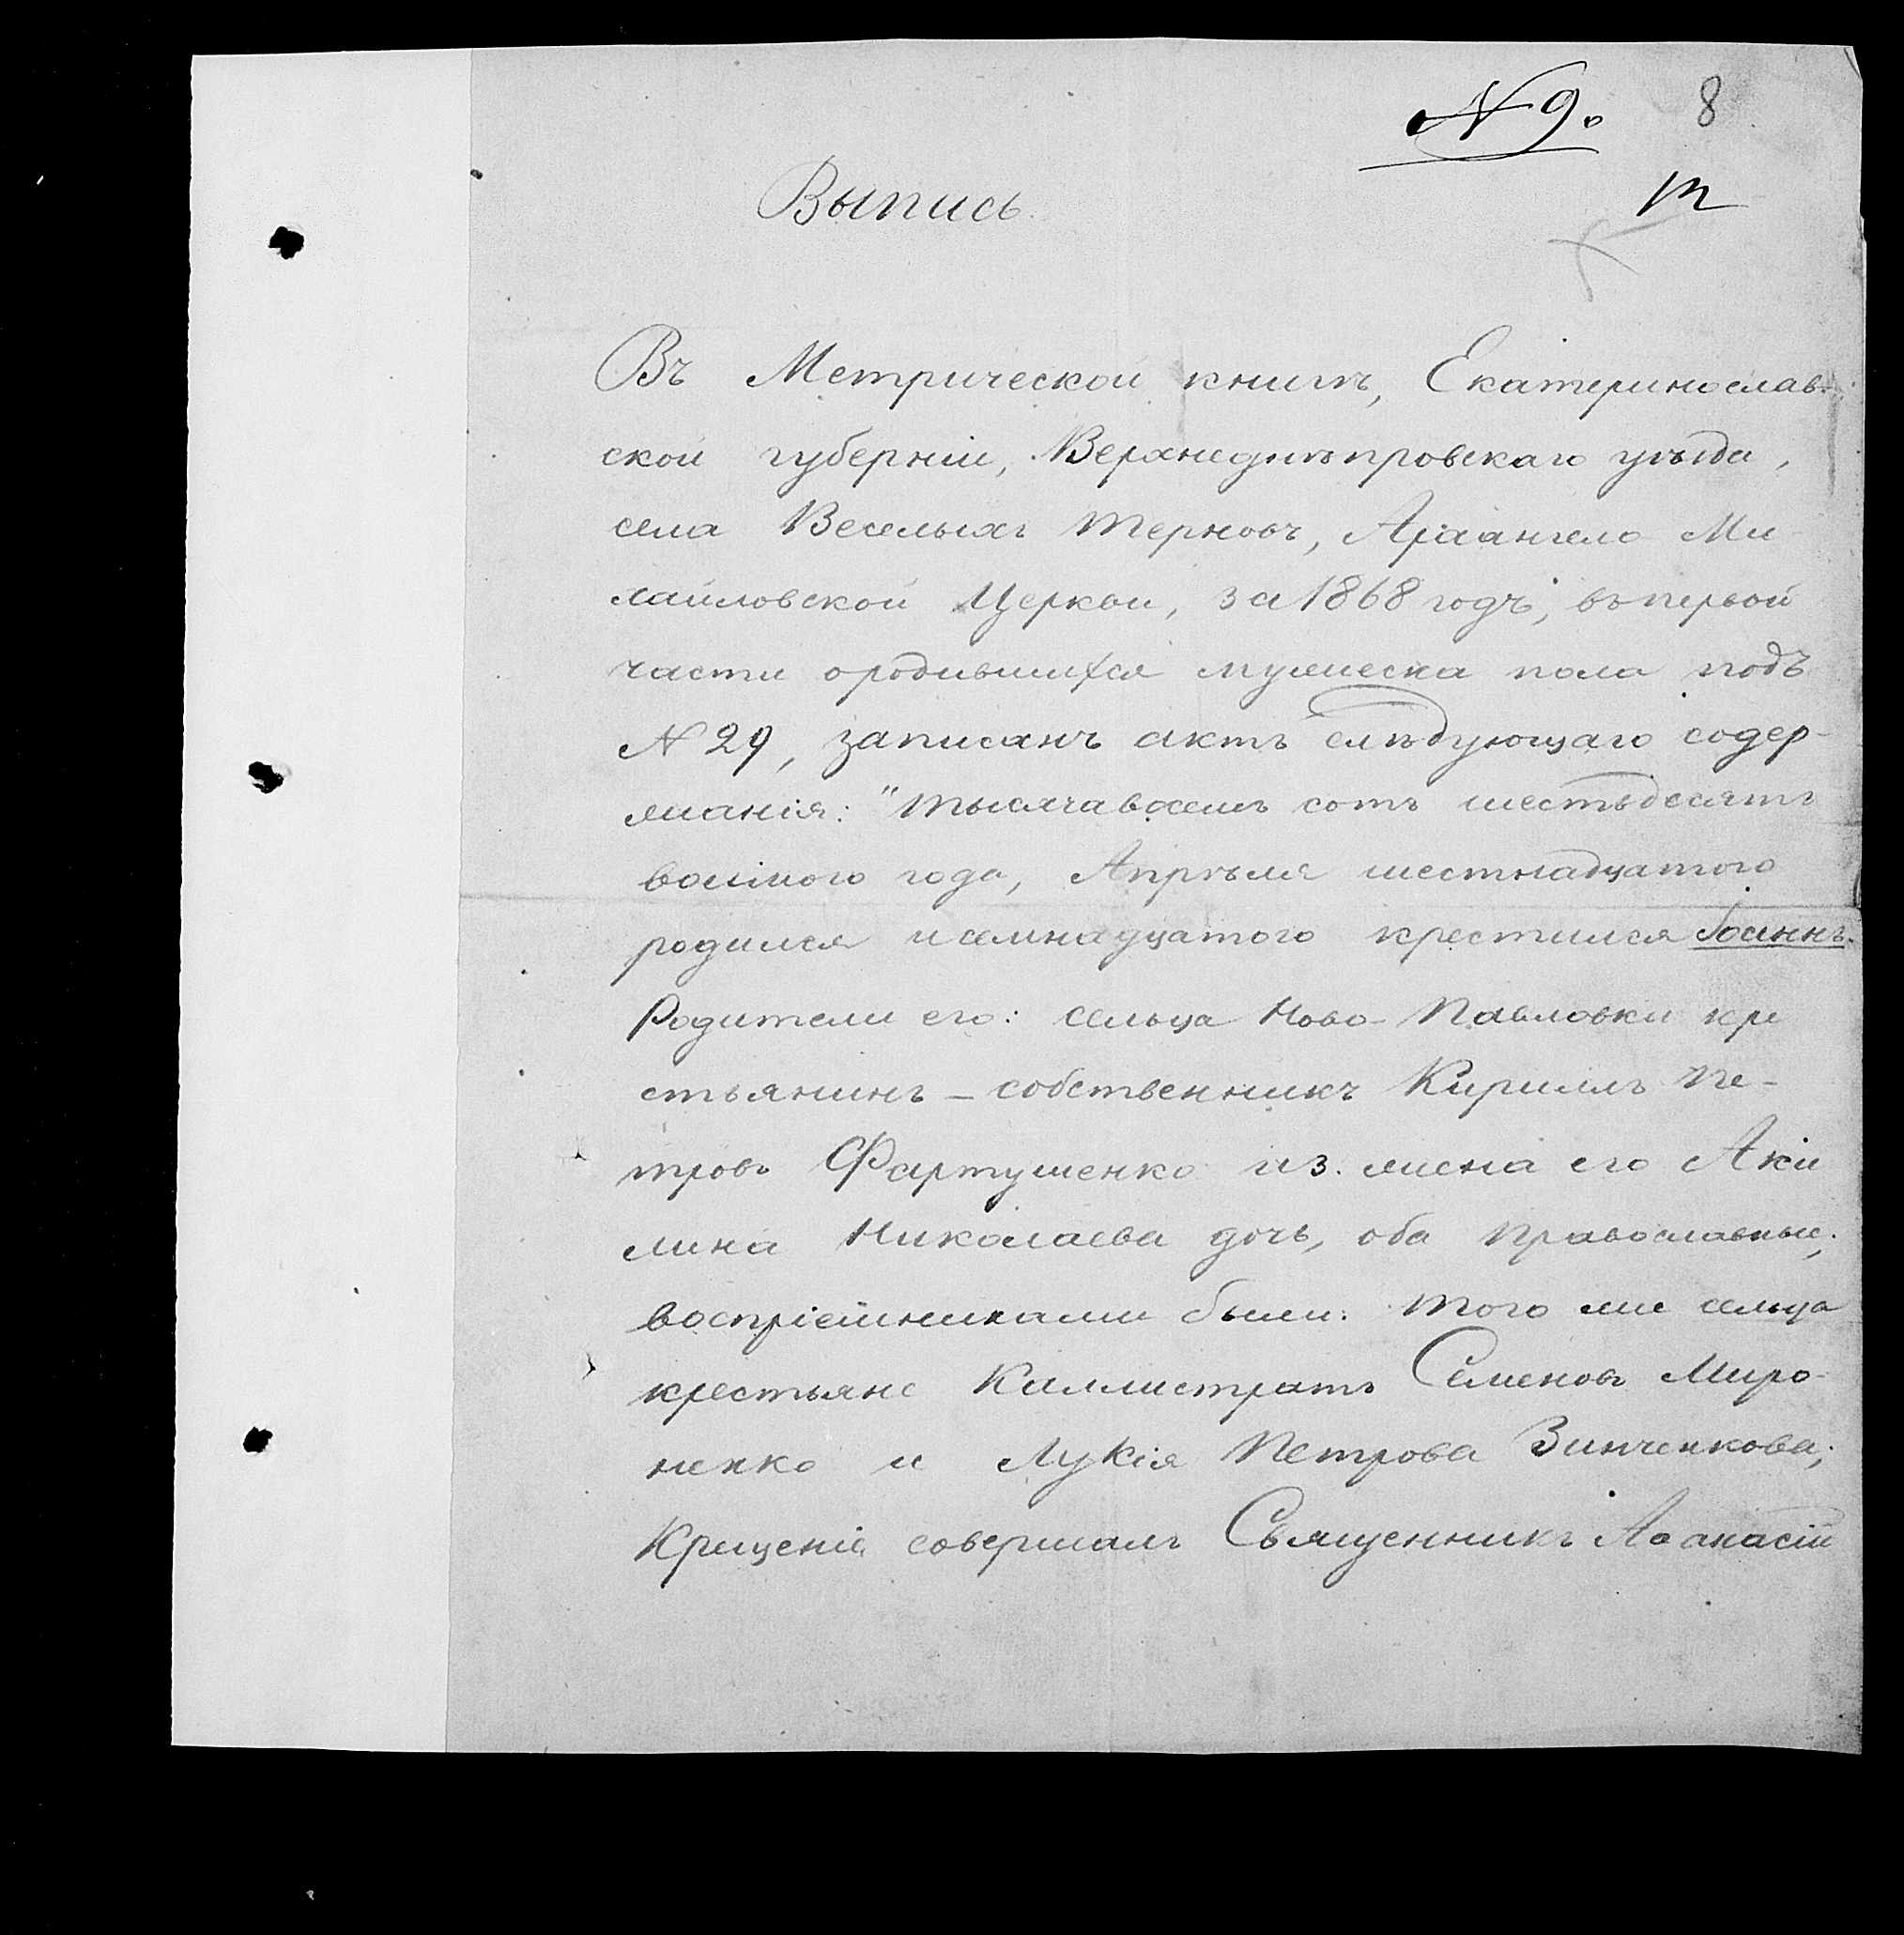 N 9. 8
Выпись
Въ Метрической книгѣ, Екатеринослав-
ской губерніи, Верхнеднѣпровскаго уѣзда,
села Веселыхъ Терновъ, Архангело Ми
хайловской Церкви, за 1868 годъ, въ первой
части о родившихся мужеска пола подъ
N 29, записанъ актъ слѣдующаго содер-
жанія: "Тысяча восемь сотъ шестьдесятъ
восьмого года, Апрѣля шестнадцатого
родился и семнадцатого крестился Іоаннъ.
Родители его: сельца Ново-Павловки кре
стьянинъ – собственникъ Кириллъ Пе-
тровъ Фартушенко и з. жена его Аки
лина Николаева дочь, оба православные;
воспріемниками были: того же сельца
крестьяне Каллистратъ Семеновъ Миро-
ненко и Лукія Петрова Зинченкова;
Крещеніе совершалъ Священникъ Аѳанасій